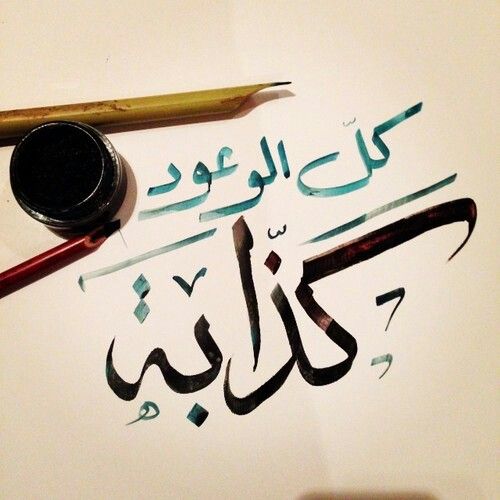 كلّ الوعود
كذّابة